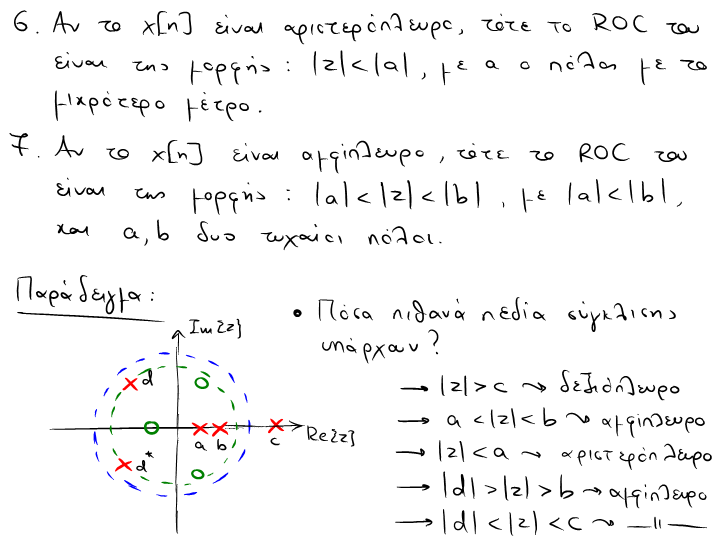 6. Αν το x[n] είναι αριστερόπλευρο, τότε το ROC του
είναι της μορφής : |z|<|a|, με a ο πόλος με το
μικρότερο μέτρο.
7. Αν το x[n] είναι αμφίπλευρο, τότε το ROC του
είναι της μορφής : |a|<|z|<|b|, με |a|<|b|,
και a,b δυο τυχαίοι πόλοι.
Παράδειγμα:
• Πόσα πιθανά πεδία σύγκλισης
υπάρχουν?
Im{z}
d
a b c
Re{z}
d*
→ |z|>c ⤳ δεξιόπλευρο
→ a<|z|<b ⤳ αμφίπλευρο
→ |z|<a ⤳ αριστερόπλευρο
→ |d|>|z|>b → αμφίπλευρο
→ |d|<|z|<c ⤳ —||—